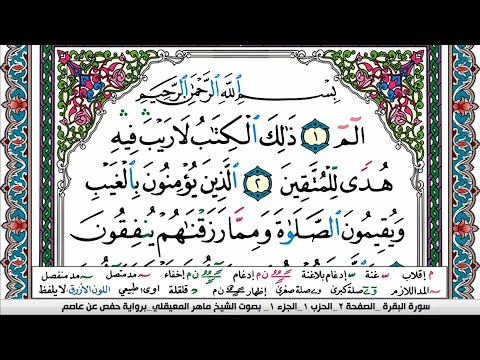 بِسْمِ ٱللَّهِ ٱلرَّحْمَٰنِ ٱلرَّحِيمِ
الٓمٓ ١ ذَٰلِكَ ٱلْكِتَٰبُ لَا رَيْبَ ۛ فِيهِ ۛ
هُدًى لِّلْمُتَّقِينَ ٢ ٱلَّذِينَ يُؤْمِنُونَ بِٱلْغَيْبِ
وَيُقِيمُونَ ٱلصَّلَوٰةَ وَمِمَّا رَزَقْنَٰهُمْ يُنفِقُونَ
م إقلاب س غنة س إدغام بلاغنة ن م إدغام ن م إخفاء مد متصل مد منفصل
مد اللازم صلة كبرى صلة صغرى إظهار ن م قلقلة اوى طبيعي اللون الأزرق لا يلفظ
سورة البقرة _الصفحة ٢_ الحزب ١_ الجزء ١_ بصوت الشيخ ماهر المعيقلي_ برواية حفص عن عاصم